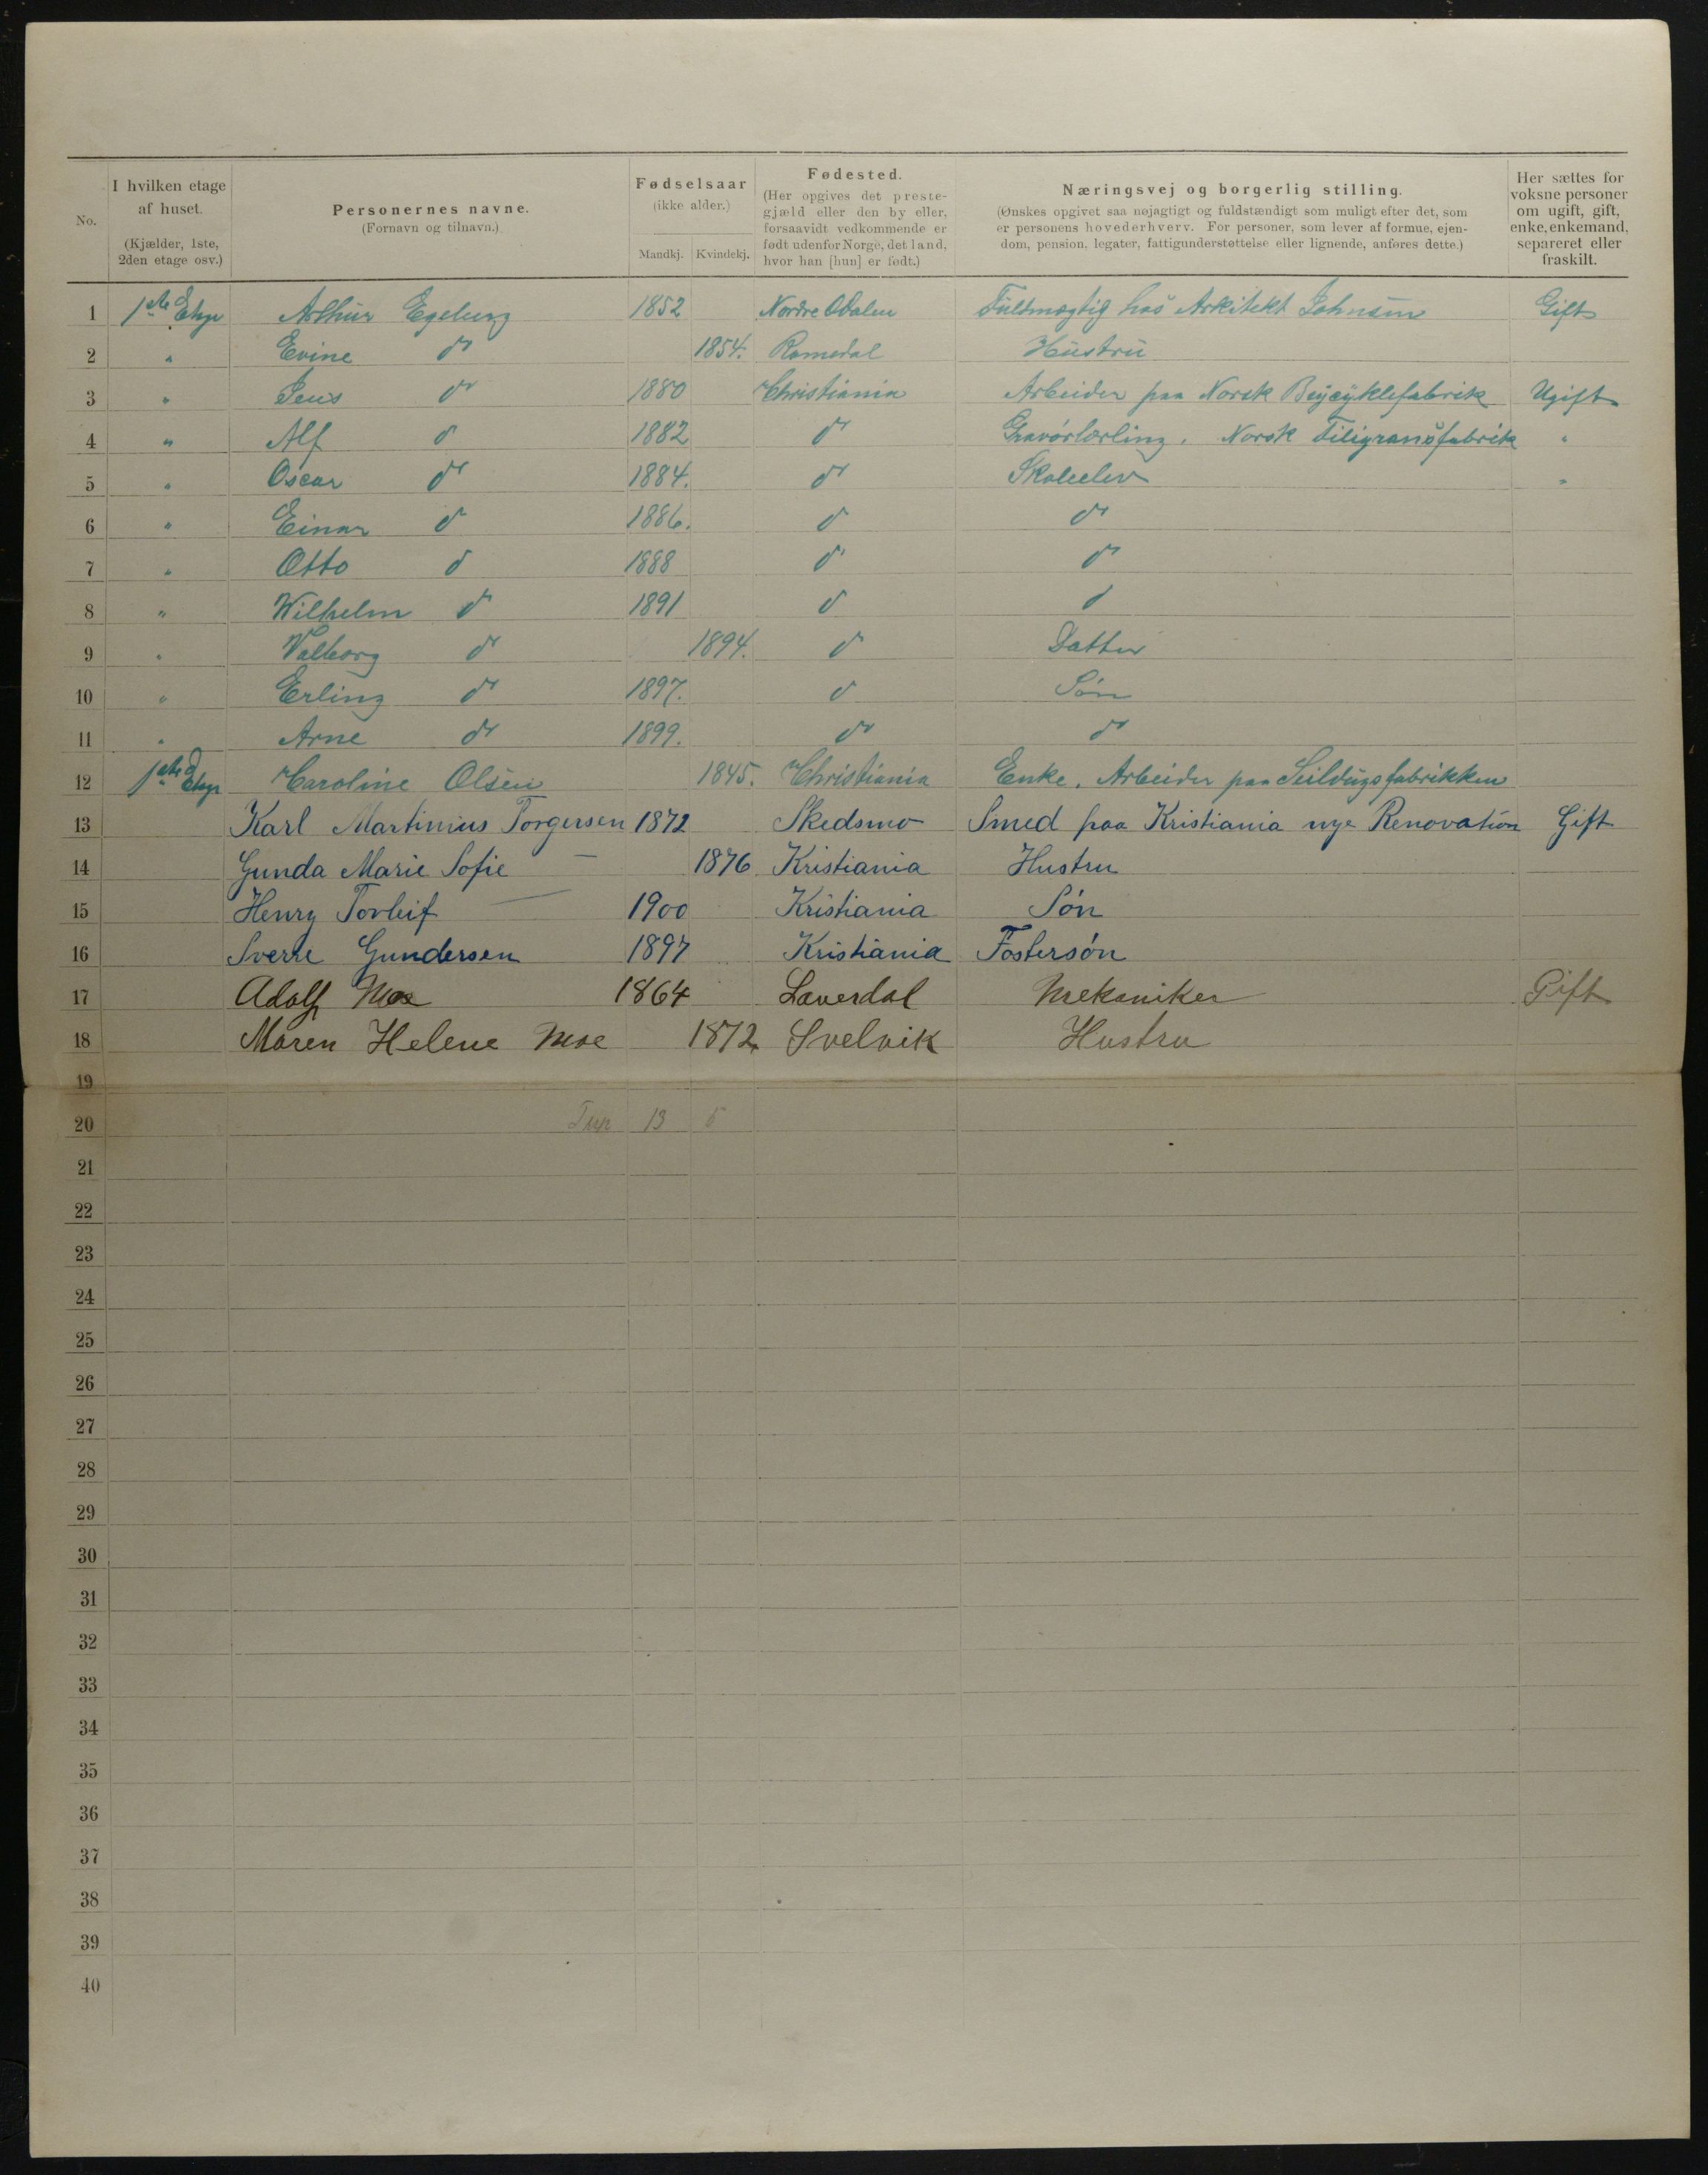 No.
I hvilken etage af huset. (Kjælder, 1ste, 2den etage osv.)
Personernes navne. (Fornavn og tilnavn.)
Fødselsaar (ikke alder.) Mandkj. Kvindekj.
Fødested. (Her opgives det prestegjæld eller den by eller, forsaavidt vedkommende er født udenfor Norge, det land, hvor han [hun] er født.)
Næringsvej og borgerlig stilling. (Ønskes opgivet saa nøjagtigt og fuldstændigt som muligt efter det, som er personens hovederhverv. For personer, som lever af formue, ejendom, pension, legater, fattigunderstøttelse eller lignende, anføres dette.)
Her sættes for voksne personer om ugift, gift, enke, enkemand, separeret eller fraskilt.
1 1ste Etage Arthur Egeberg 1852 Nordre Odalen Fuldmægtig hos Arkitekt Johnsen Gift
2 " Evine do 1854. Romedal Hustru
3 " Jens do 1880 Christiania Arbeider paa Norsk Bycyklefabrik Ugift
4 " Alf do 1882 do Gravørlærling. Norsk Filigransfabrik "
5 " Oscar do 1884. do Skoleelev "
6 " Einar do 1886. do do
7 " Otto do 1888 do do
8 " Wilhelm do 1891 do do
9 " Valborg do 1894. do Datter
10 " Erling do 1897. do Søn
11 " Arne do 1899. do do
12 1ste Etage Caroline Olsen 1845. Christiania Enke. Arbeider paa Seildugsfabrikken
13 Karl Martinius Torgersen 1872 Skedsmo Smed paa Kristiania nye Renovation Gift
14 Gunda Marie Sofie — 1876 Kristiania Hustru
15 Henry Torleif — 1900 Kristiania Søn
16 Sverre Gundersen 1897 Kristiania Fostersøn
17 Adolf Moe 1864 Laverdal Mekaniker Gift
18 Maren Helene Moe 1872 Svelvik Hustru
19
20 13 5
21
22
23
24
25
26
27
28
29
30
31
32
33
34
35
36
37
38
39
40